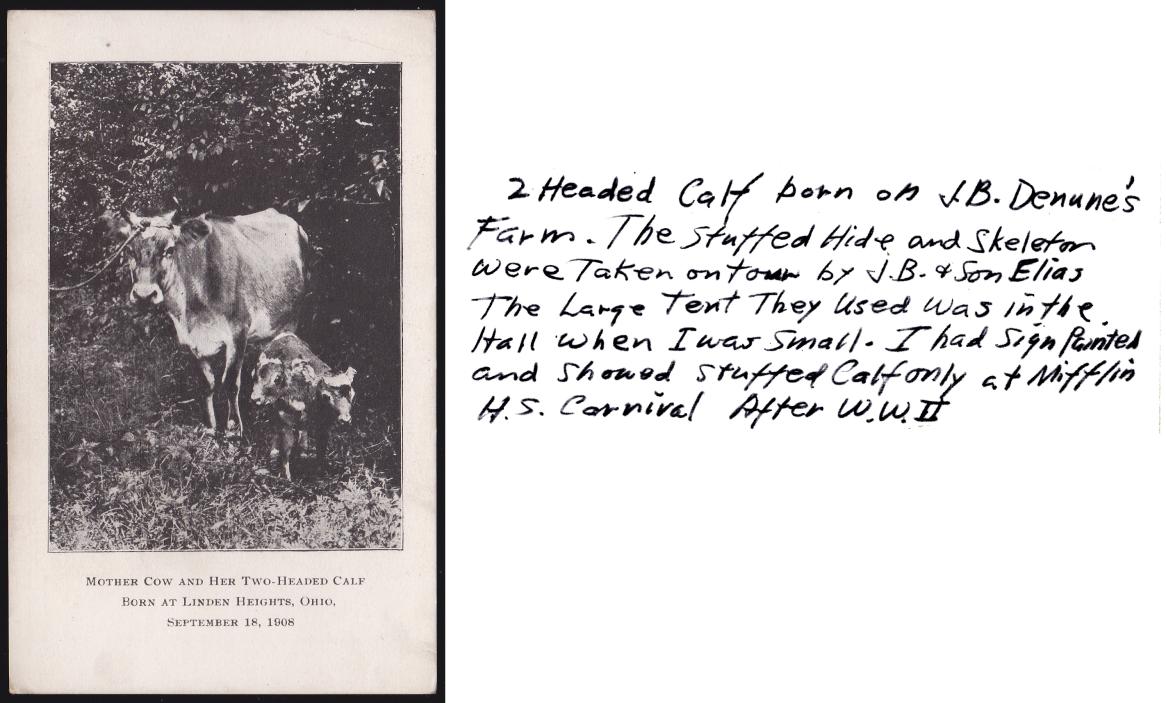 MOTHER COW AND HER TWO-HEADED CALF
BORN AT LINDEN HEIGHTS, OHIO,
SEPTEMBER 18, 1908
2 Headed Calf born on J.B. Denune's
Farm. The Stuffed Hide and Skeleton
were Taken on tour by J.B. & Son Elias
The Large Tent They Used was in the
Hall when I was Small. I had Sign Painted
and Showed Stuffed Calf only at Mifflin
H.S. Carnival After W.W.II